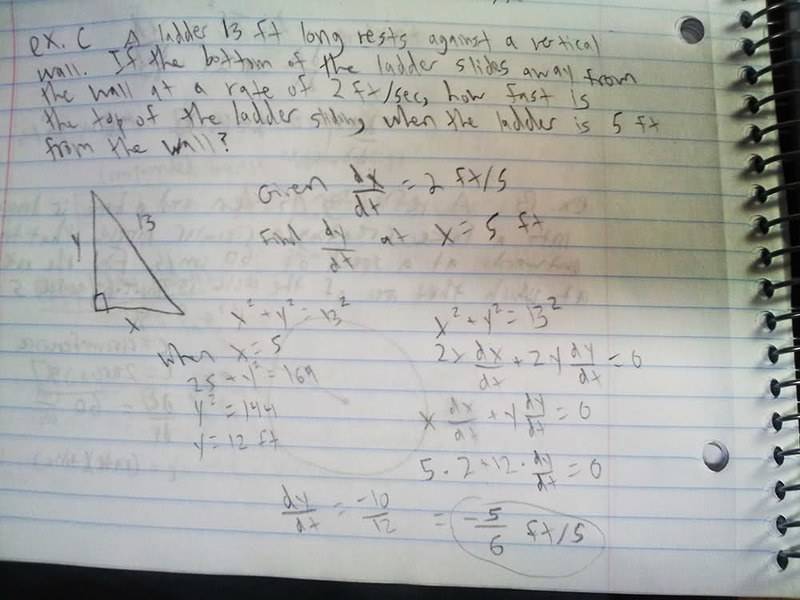 ex. C A ladder 13 ft long rests against a vertical
wall. If the bottom of the ladder slides away from
the wall at a rate of 2 ft/sec, how fast is
the top of the ladder sliding, when the ladder is 5 ft
from the wall?
Given dx/dt = 2 ft/s
Find dy/dt at x = 5 ft
y 13
x
x² + y² = 13²
when x = 5
25 + y² = 169
y² = 144
y = 12 ft
x² + y² = 13²
2x dx/dt + 2y dy/dt = 0
x dx/dt + y dy/dt = 0
5 · 2 + 12 · dy/dt = 0
dy/dt = -10/12 = -5/6 ft/s